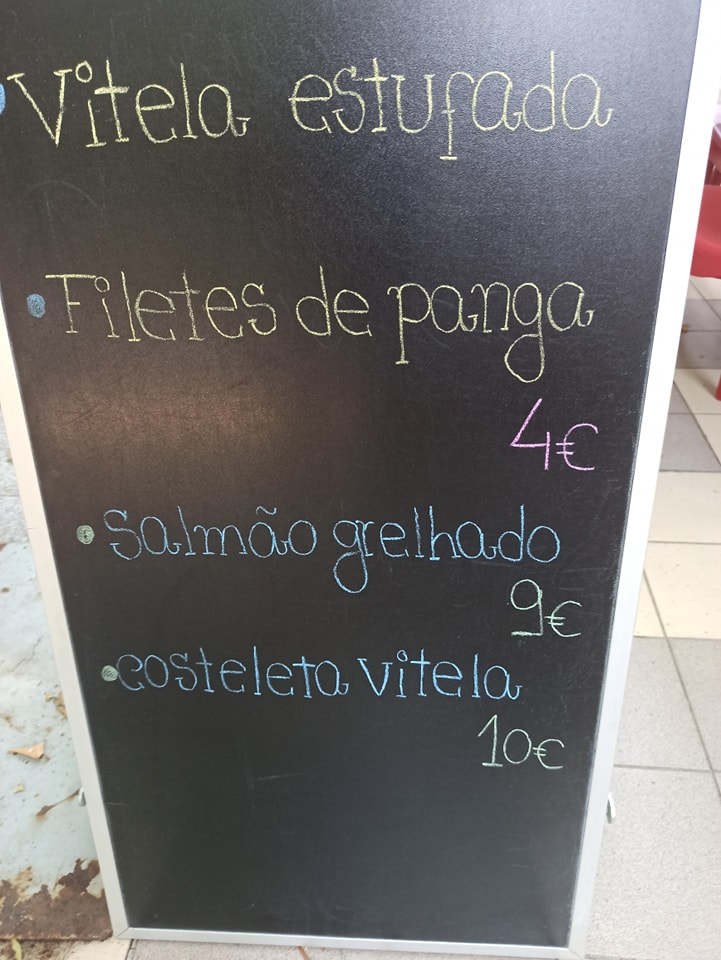 Vitela estufada
Filetes de panga
4€
salmão grelhado
9€
costeleta vitela
10€